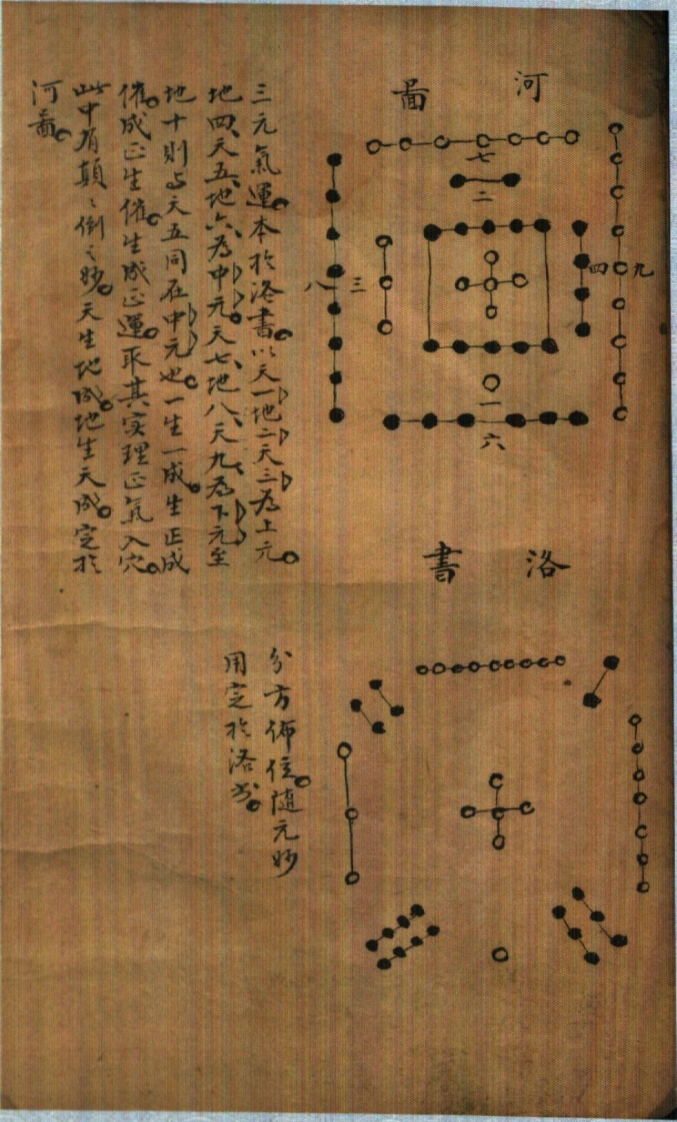 河圖
七
二
八
三
四
九
一
六
三元氣運。本於洛書。以天一地二天三為上元。
地四、天五、地六、為中元。天七、地八、天九、為下元至
地十則与天五同在中元也。一生一成。生正成
催。成正生催。生成正運。取其实理正氣入穴。
此中有顛〻倒之妙。天生地成。地生天成。定於
河圖。
洛書
分方佈位。隨元妙
用定於洛书。